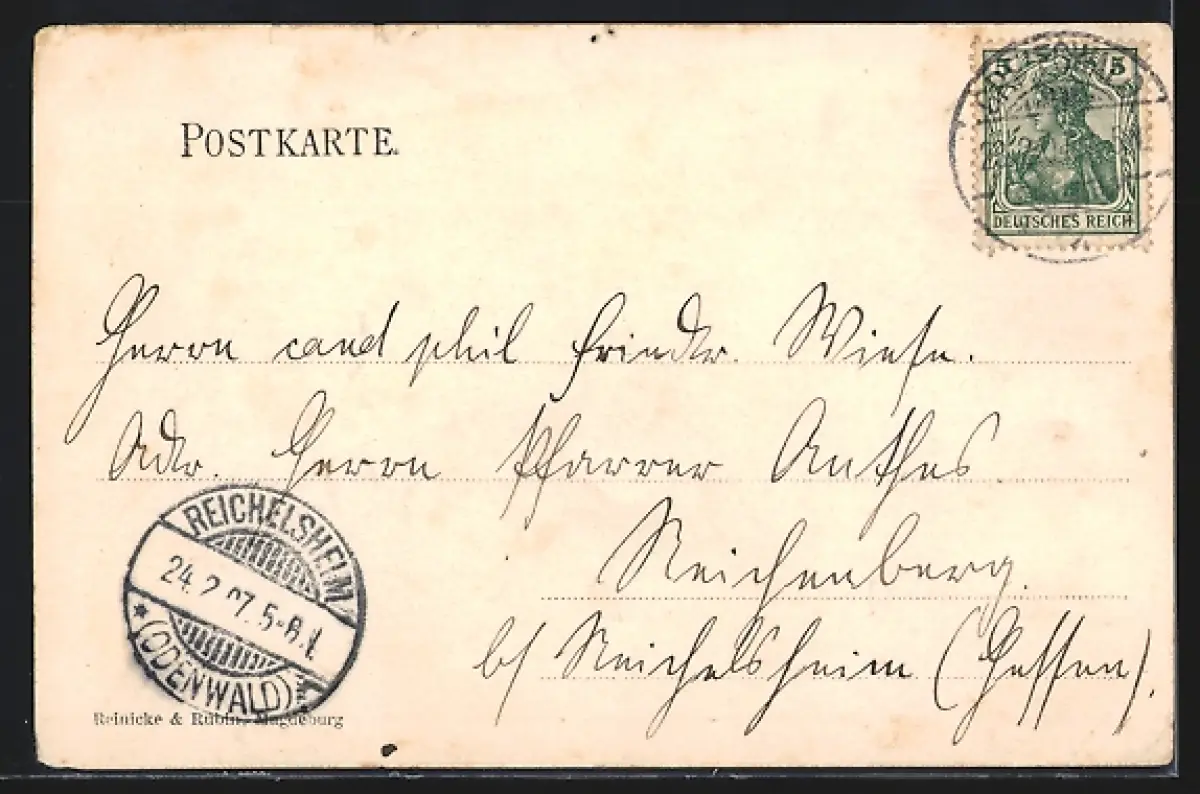 POSTKARTE.
5 5
DEUTSCHES REICH
Herrn cand phil Friedr. Wiese.
Adr. Herrn Pfarrer Anthes
Reichenberg.
b/ Reichelsheim (Hessen).
REICHELSHEIM
24.2.07. 5-6.
* (ODENWALD)
Reinicke & Rubin, Magdeburg